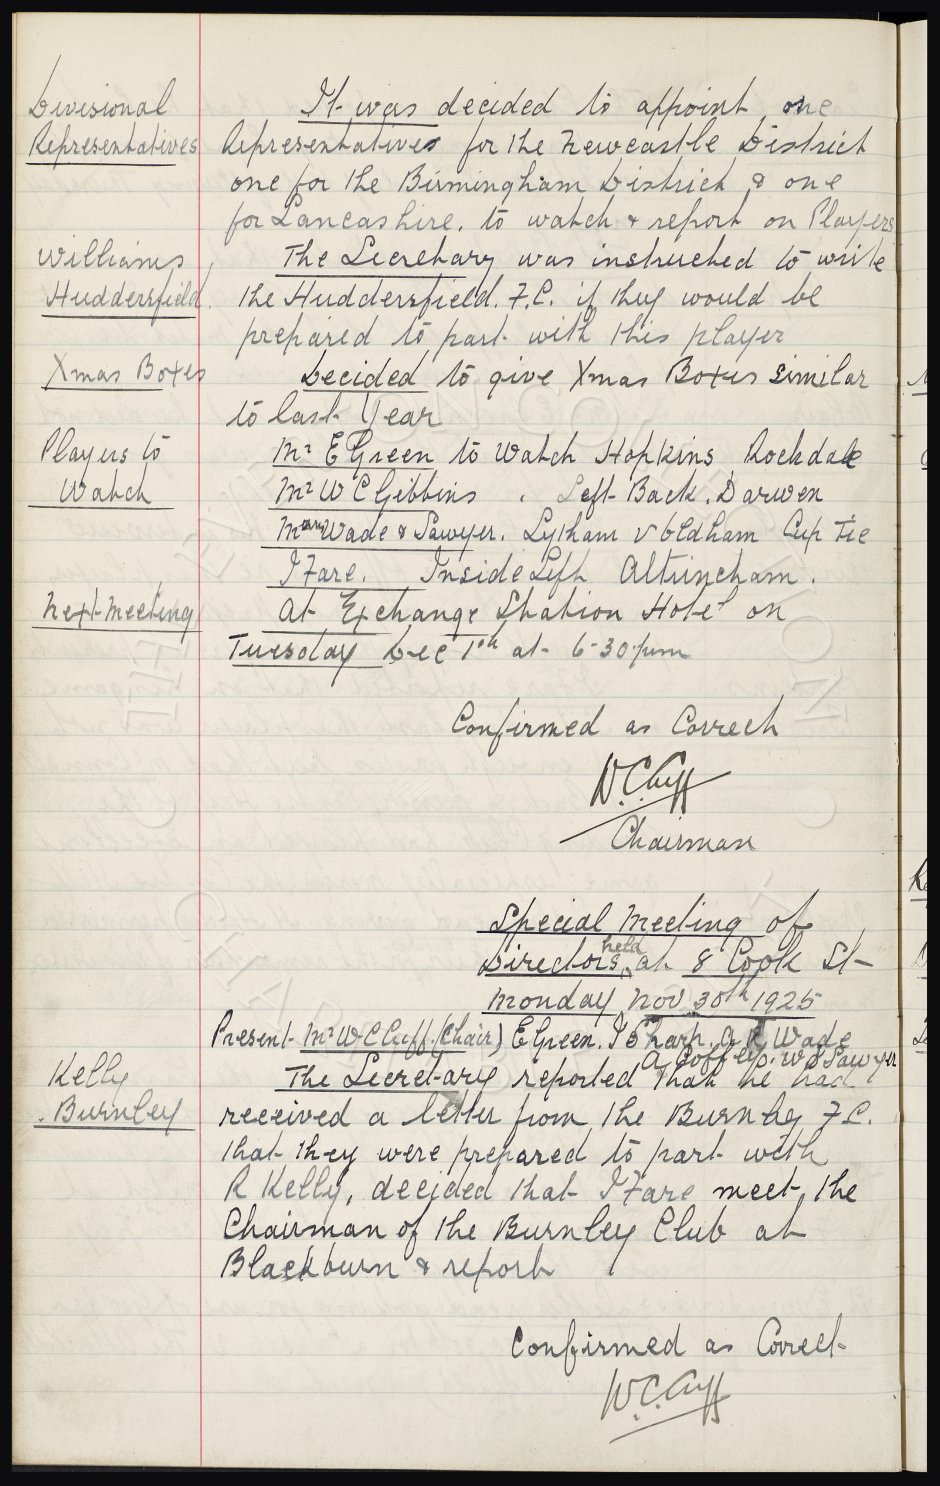 Divisional
Representatives
It was decided to appoint one
Representatives for the Newcastle District
one for the Birmingham District & one
for Lancashire. to watch & report on Players
Williams
Huddersfield.
The Secretary was instructed to write
the Huddersfield. F.C. if they would be
prepared to part with this player
Xmas Boxes
Decided to give Xmas Boxes similar
to last Year
Players to
Watch
Mr E Green to Watch Hopkins Rochdale
Mr W C Gibbins . Left Back. Darwen
Messrs Wade & Sawyer. Lytham v Oldham Cup Tie
I Fare. Inside Left Altrincham.
Next Meeting
At Exchange Station Hotel on
Tuesday Dec 1st at 6-30 pm
Confirmed as Correct
W.C. Cuff
Chairman
Special Meeting of
Directors held at 8 Cook St
Monday Nov 30th 1925
Present- Mr W C Cuff (Chair) E Green. I Sharp. A R Wade
A Coffey. W S Sawyer
Kelly
Burnley
The Secretary reported that he had
received a letter from the Burnley F.C.
that they were prepared to part with
R Kelly, decided that I Fare meet the
Chairman of the Burnley Club at
Blackburn & report
Confirmed as Correct
W.C. Cuff